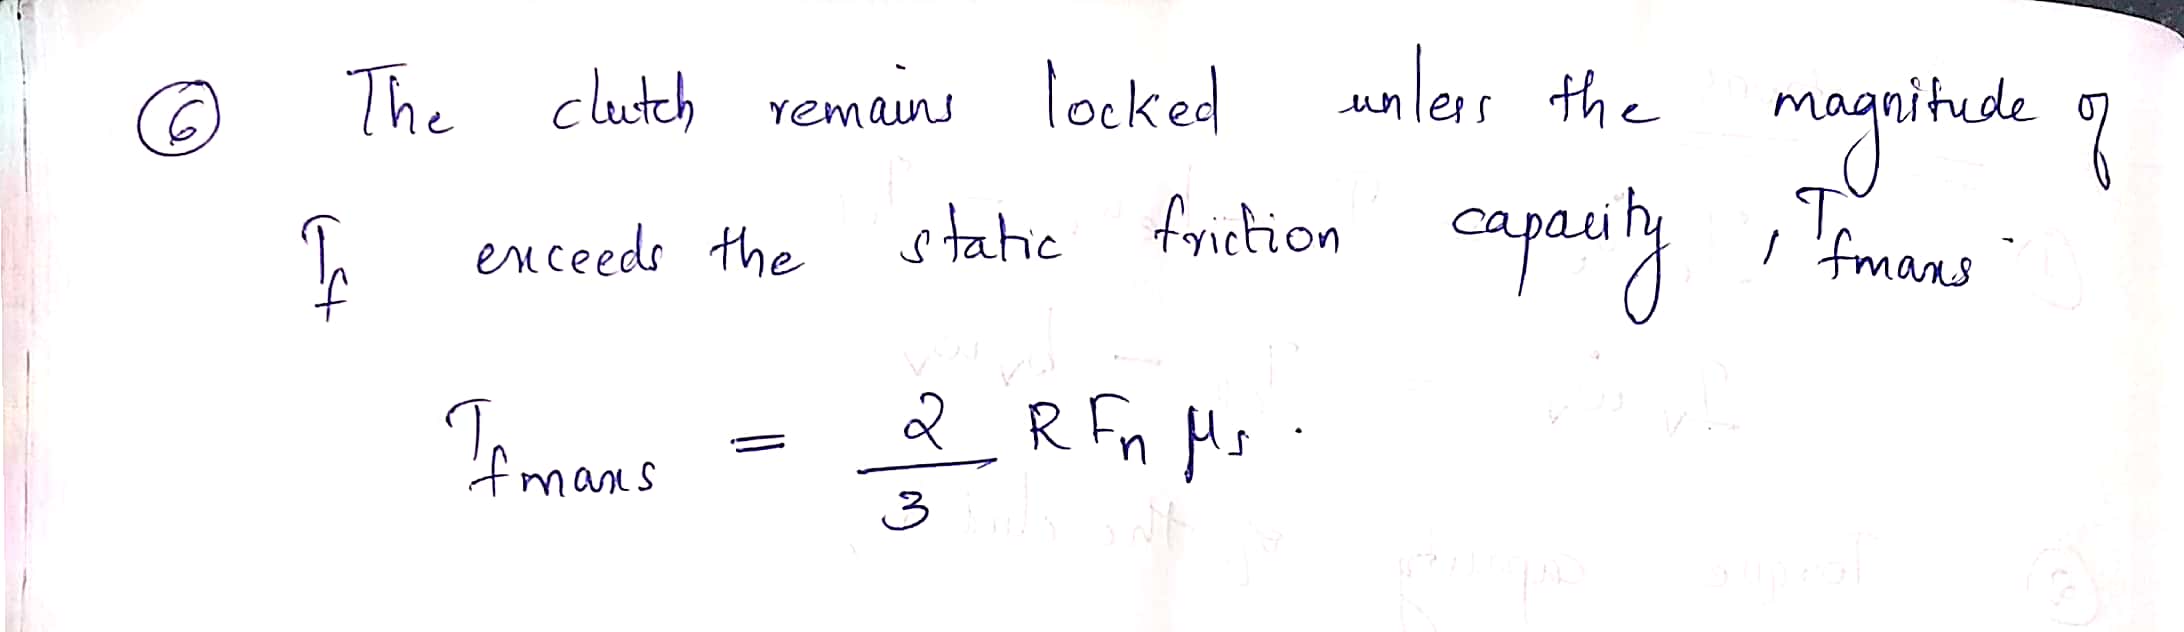 ⑥ The clutch remains locked unless the magnitude of
T_f exceeds the static friction capacity, T_fmaxs.
T_fmaxs = 2/3 R F_n μ_s.